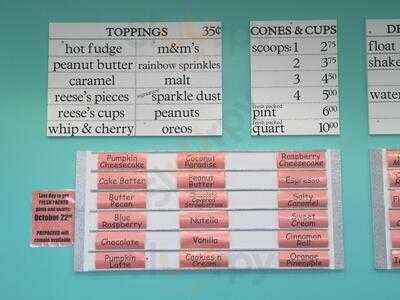 TOPPINGS 35¢
hot fudge m&m's
peanut butter rainbow sprinkles
caramel malt
reese's pieces signature sparkle dust
reese's cups peanuts
whip & cherry oreos
CONES & CUPS
scoops: 1 2.75
2 3.75
3 4.50
4 5.00
fresh packed
pint 6.00
fresh packed
quart 10.00
float
shake
water
Last day to get
FRESH PACKED
pints and quarts:
October 22nd
PREPACKED will
remain available
Pumpkin Cheesecake
Coconut Paradise
Raspberry Cheesecake
Cake Batter
Peanut Butter
Espresso
Butter Pecan
Chocolate Covered
Salty Caramel
Blue Raspberry
Nutella
Sweet Cream
Chocolate
Vanilla
Cinnamon Roll
Pumpkin Latte
Cookies n Cream
Orange Pineapple